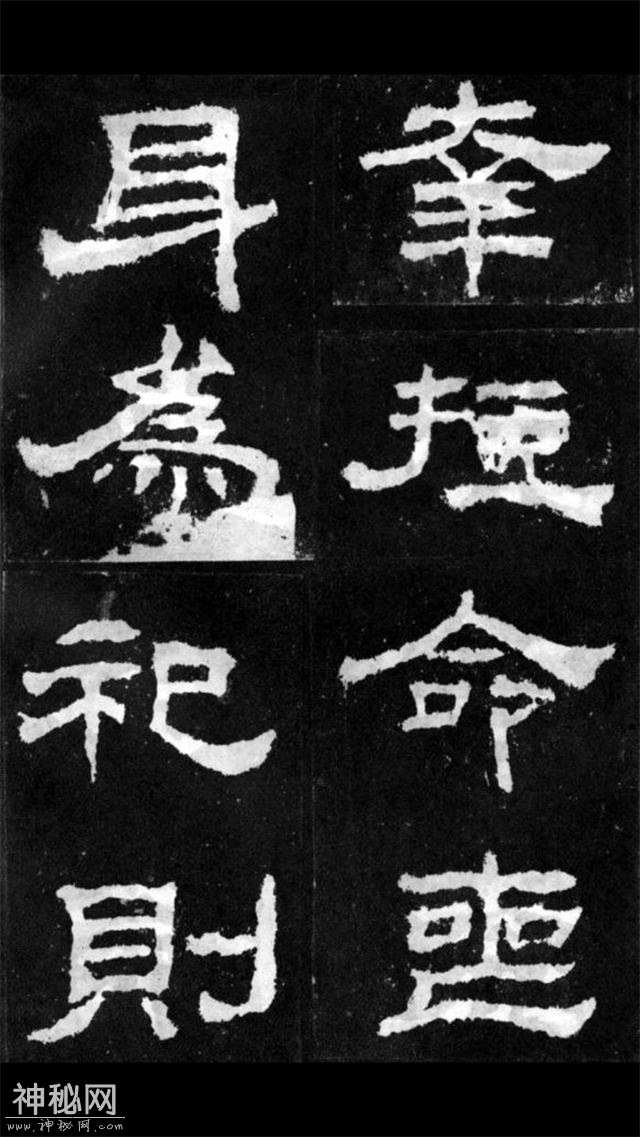 幸短命喪
身為祀則
神秘网
www.神秘网.com